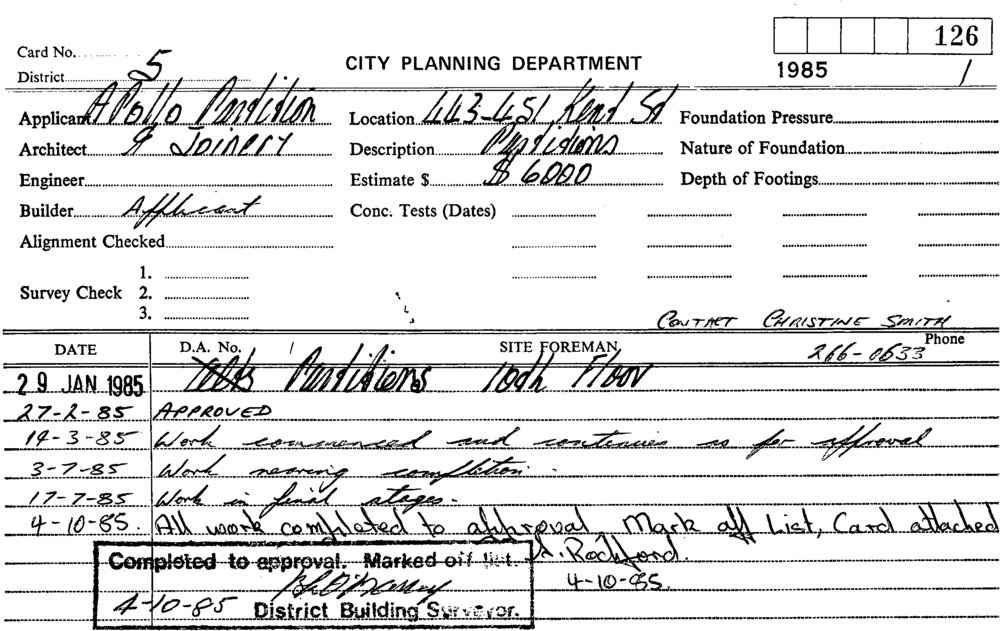 126
Card No.
1985 /
District 5
CITY PLANNING DEPARTMENT
Applicant Apollo Partition
Location 443-451 Kent St
Foundation Pressure
Architect & Joinery
Description Partitions
Nature of Foundation
Engineer
Estimate $ $ 6000
Depth of Footings
Builder Applicant
Conc. Tests (Dates)
Alignment Checked
1.
Survey Check 2.
3.
CONTACT CHRISTINE SMITH
DATE D.A. No. SITE FOREMAN 266-0633 Phone
29 JAN 1985 Partitions 10th Floor
27-2-85 APPROVED
14-3-85 Work commenced and continues as per approval
3-7-85 Work nearing completion.
17-7-85 Work in final stages.
4-10-85. All work completed to approval, Mark off List, Card attached
Completed to approval. Marked off list.
A. Rochford.
4-10-85.
4-10-85 District Building Surveyor.